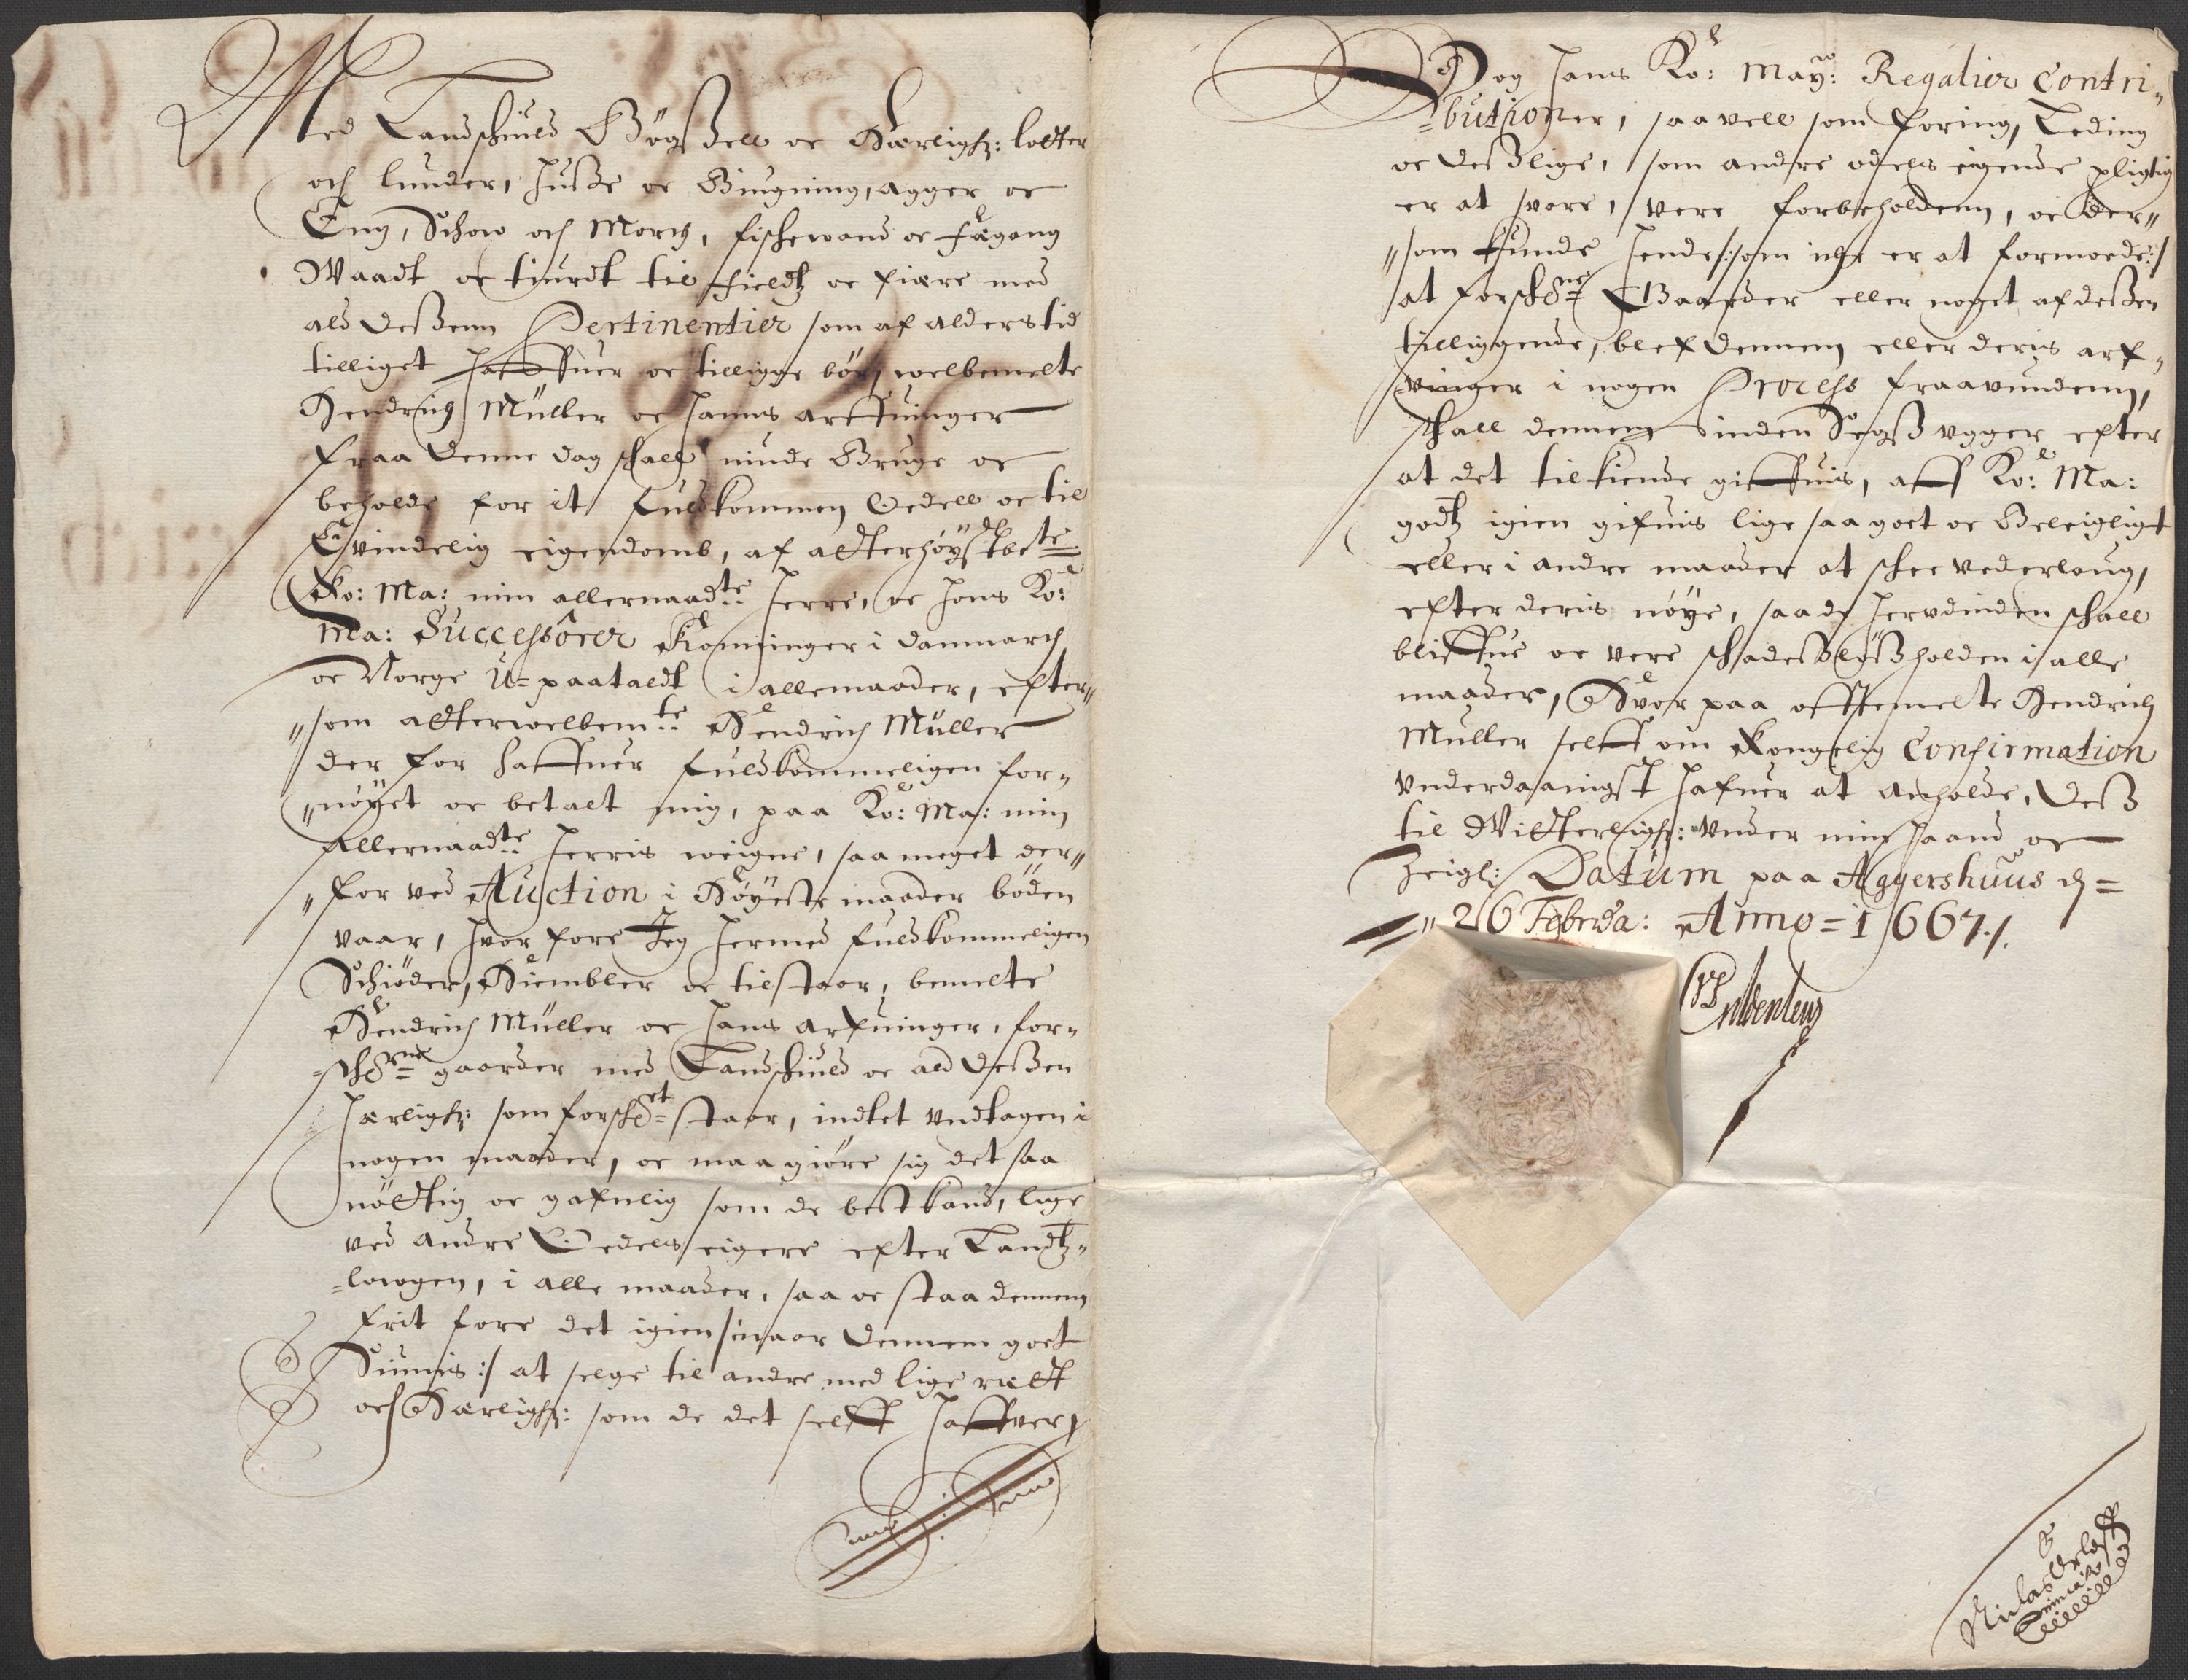 Med Landschuld Bøgssell oc Herligh: lotter
och lunder, Husse oc Biugning, agger oc
Eng, Schow och March, fischewand oc fægang
Waadt oc tiurdt til fieldtz oc fiære med
ald dessenn Pertinentier som af alders tid
tilliget haffuer oc tilligge bør, welbemelte
Hendrich Müller oc hanns arffuinger
fraa denne dag schall niude Bruge oc
beholde for it fuldkommen Oedell oc til
Evindelig eigendomb, af alterhøystbete
Ko: Ma: min allernaadte Herre, oc hans Ko:
Ma: Successôrer Konninger i Danmarch
oc Norge U=paataldt i allemaader, efter„
„som alterwelbemte Hendrich Müller
der for haffuer fuldkommeligen for„
„nøyet oc betalt mig, paa Ko: Ma: min
Allernaadte Herris weigne, saa meget der„
„for ved Auction i Høyeste maader böden
vaar, hvor fore Jeg hermed fuldkommeligen
Schiøder, Hiembler oc tilstaar, bemelte
Hendrich Müller oc hans arfuinger, for„
=schrne gaarder med Landschuld oc ald dessen
Herligh: som forschret staar, indtet undtagen i
nogen maader, oc maa giøre sig det saa
nøttig oc gafnlig som de best kand, lige
ved andre Oedels eigere efter Landtz„
=lowgen, i alle maader, saa oc staa dennem
frit fore det igien /:naar dennem goet
Siunis:/ at selge til andre med lige rætt
och Herligh: som de det selff haffver,
Dog hans Ko: May: Regalier Contri„
=butioner, saa vell som foring, Leding
oc desslige, som andre odels eigende pligtig
er at svare, vere forbeholdenn, oc der„
„som kunde hende /:som iche er at formoede:/
at forschne Gaarder eller noget af dessen
tilliggende, blef dennem eller deris arf„
vinger i nogen Process fraavundenn,
schall dennem inden Segss ugger efter
at det tilkiende giffuis, aff Ko: Ma:
godtz igien gifuis lige saa goet oc Beleigligt
eller i andre maader at schee vederlaug,
efter deris nøye, saa de herudinden schall
bliffue oc vere schadesløssholden i alle
maader, Hvor paa offtemelte Hendrich
Müller selff om Kongelig Confirmation
underdaanigst hafuer at anholde, Dess
til Witterligh: under min Haand oc
Zeigl: Datum paa Aggershuus d=
„26 Februa: Anno=1667./.